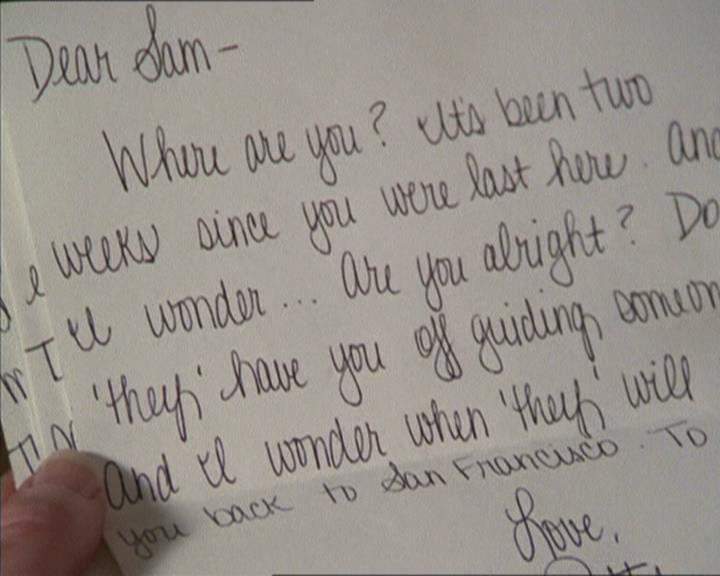 Dear Sam-
Where are you? It's been two
weeks since you were last here. and
I wonder... are you alright? Do
'they' have you off guiding someon
and I wonder when 'they' will
you back to San Francisco. To
Love,